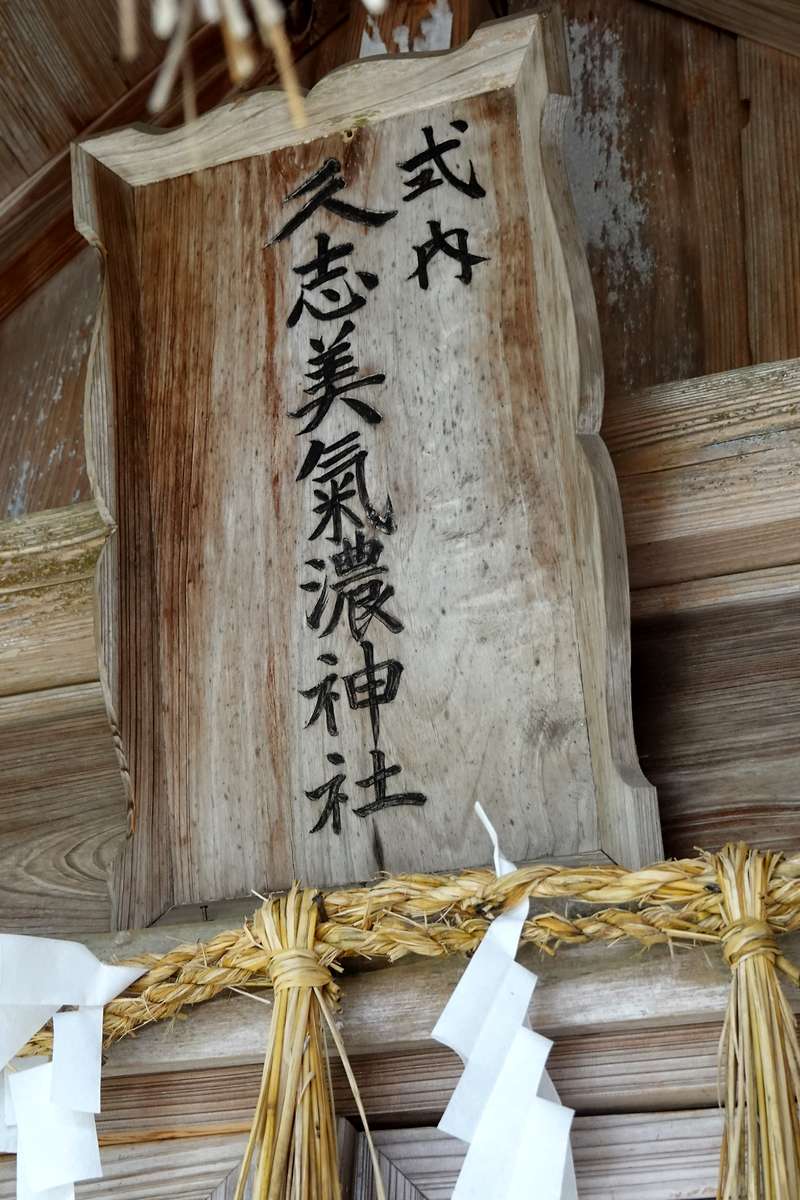 式内
久志美氣濃神社